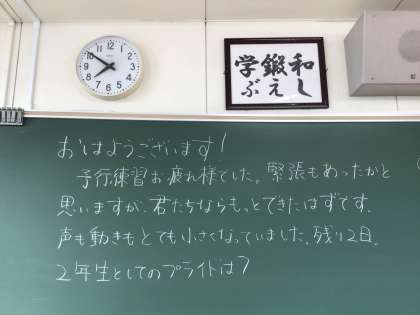 和し
鍛え
学ぶ
おはようございます!
予行練習お疲れ様でした。緊張もあったかと
思いますが、君たちならもっとできたはずです。
声も動きもとても小さくなっていました。残り2日。
2年生としてのプライドは?